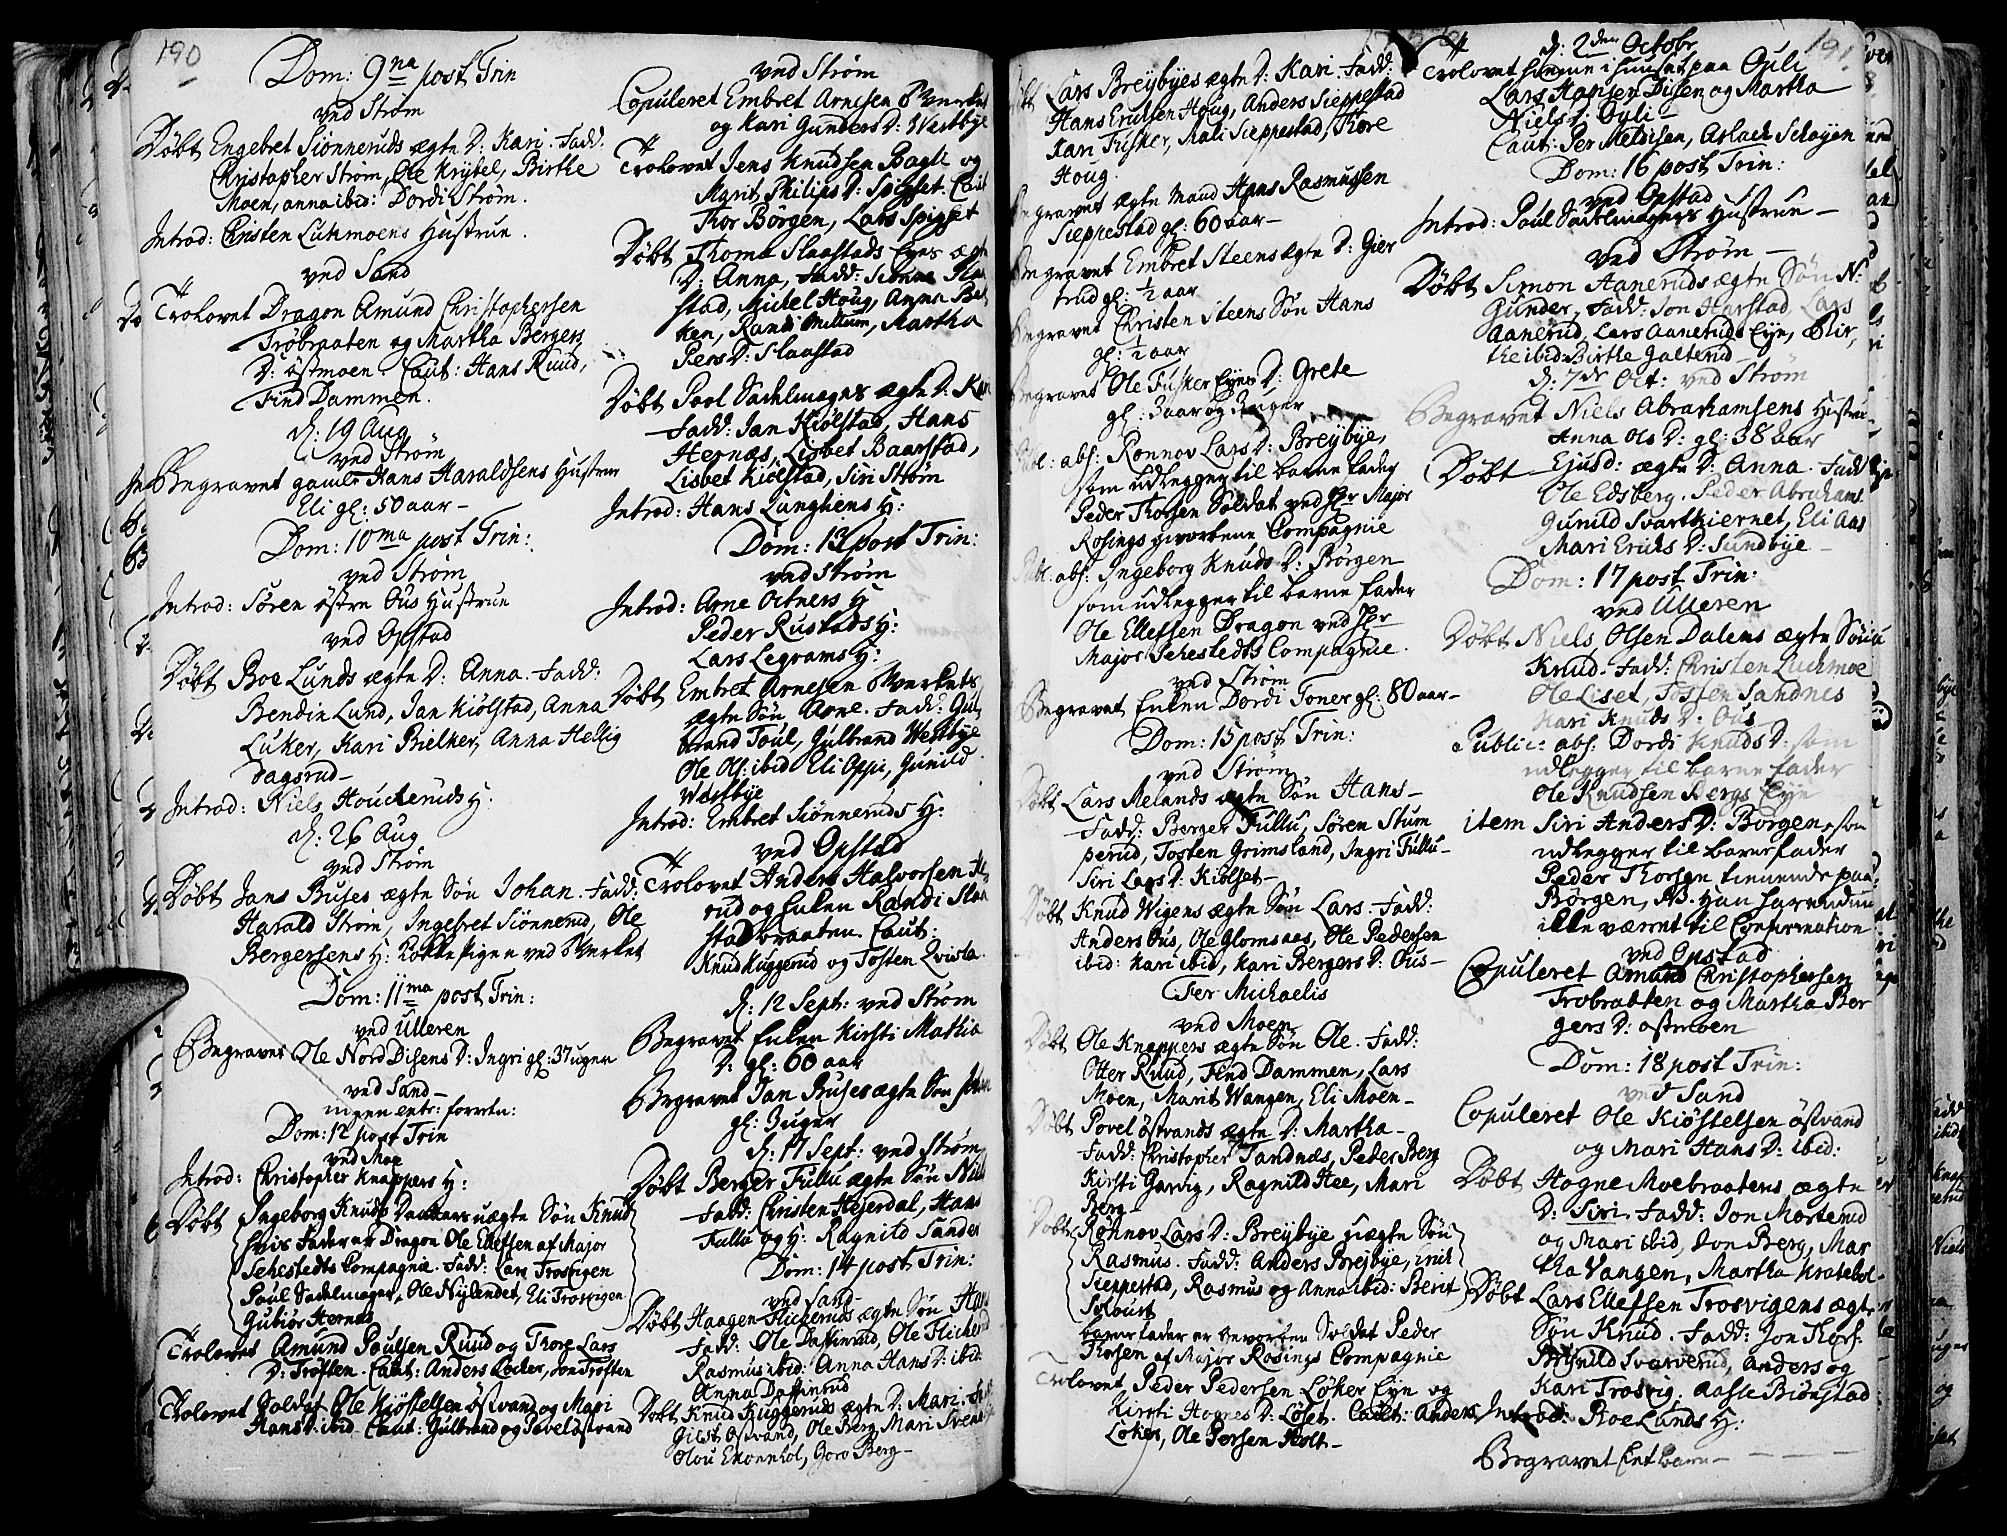 190
Dom: 9na post Trin
ved Strøm
Døbt Engebret Siønneruds ægte D: Kari. Fadd:
Christopher Strøm, Ole Krÿtel, Birthe
Moen, anna ibid: Dordi Strøm.
Introd: Christen Luhmoens Hustrue.
ved Sand
Trolovet Dragon Amund Christophersen
Trøbraaten og Martha Bergers
D: østmoen. Caut: Hans Ruud,
Find Dammen.
d: 19 Aug
ved Strøm
Begravet gamle Hans Haraldsens Hustrue
Eli gl: 50 aar –
Dom: 10ma post Trin:
ved Strøm
Introd: Søren østre Ous Hustrue
ved Opstad
Døbt Boe Lunds ægte D: Anna. Fadd:
Bendin Lund, Jan Kiølstad, Anna
Luker, Kari Bielker, Anna Hellig
Dagsrud –
Introd: Niels Houckeruds H:
d: 26 Aug
ved Strøm
Døbt Jans Buses ægte Søn Johan. Fadd:
Harald Strøm, Ingebret Siønnerud, Ole
Bergersens H: Kokkepigen ved Werket
Dom: 11ma post Trin:
ved Ulleren
Begravet Ole Nord Disens D: Ingri gl: 37 uger
ved Sand –
ingen entr: forretn:
Dom: 12 post Trin
ved Moe
Introd: Christopher Knappers H:
Døbt Ingeborg Knuds Datters uægte Søn Knud
hvis Fader er Dragon Ole Ellefsen af Major
Sehestedts Compagnie. Fadd: Lars Trosvigen
Paul Sadelmager, Ole Nylendet, Eli Trosvigen
Gubiør Hernæs
Trolovet Amund Poulsen Ruud og Thore Lars
D: Trøften. Caut: Anders Løcker, Jon Trøften
Trolovet Soldat Ole Kiøstelsen østvand og Mari
Hans D: ibid Caut: Gulbrand og Povel østvand
ved Strøm
Copuleret Embret Arnesen Werket
og Kari Gunders D: Westbye
Trolovet Jens Knudsen Bagli og
Marit Philips D: Spigset. Caut
Thor Børgen, Lars Spigset
Døbt Thoma Slaastads Eyes ægte
D: Anna, Fadd: Simen Slaa
stad, Michel Houg, Anna Bec
ken, Randi Mittun, Martha
Pers D: Slaastad
Døbt Paol Sadelmagers ægte D: Kari
Fadd: Jan Kiølstad, Hans
Hernæs, Lisbet Baarstad,
Lisbet Kiølstad, Siri Strøm
Introd: Hans Lunghens H:
Dom: 13 post Trin:
ved Strøm
Introd: Arne Oitners H
Peder Rustads H:
Lars Legrams H:
Døbt Embret Arnesen Werkets
ægte Søn Arne. Fadd: Gul
brand Toul, Gulbrand Westbye
Ole Ols: ibid Eli Oppi, Gunild
Westbye
Introd: Embret Siønneruds H:
ved Opstad
Trolovet Anders Halvorsen
rud og Enken Randi Slaa
stadbraaten. Caut:
Knud Kuggerud og Tosten Qvista
d: 12 Sept: ved Strøm
Begravet Enken Kirsti Mathia
D: gl: 60 aar
Begravet Jan Buses ægte Søn Johan
gl: 3 uger
d: 17 Sept: ved Strøm
Døbt Berger Fullu ægte Søn Nils
Fadd: Christen Hejerdal, Hans
Fullu og H: Ragnild Sander
Dom: 14 post Trin:
ved Sand –
Døbt Haagen Flickeruds ægte Søn Hans
Fadd: Ole Daffinrud, Ole Flickerud
Rasmus ibid: Anna Hans D: ibid:
Anna Daffinrud
Døbt Knud Kuggeruds ægte D: Mari. Fadd
Giest østvand, Ole Berg, Mari Svens
Olou Ekornhol, Goro Berg –
191
Døbt Lars Breybyes ægte D: Kari. Fadd:
Hans Erichsen Houg, Anders Sieppestad
Kari Fusker, Mali Sieppestad, Thore
Houg.
Begravet ægte Mand Hans Rasmussen
Sieppestad gl: 60 aar –
Begravet Embret Steens ægte D: Gier
trud gl: ½ aar
Begravet Christen Steens Søn Hans
gl: ½ aar
Begravet Ole Fusker Eyes D: Grete
gl: 3 aar og 3 uger
Publ: abs: Ronnov Lars D: Breybye,
som udlegger til barne fader
Peder Thorsen Soldat ved Hr Major
Rosings gevorbene Compagnie
Publ: abs: Ingeborg Knuds D: Børgen
som udlegger til barne fader
Ole Ellefsen Dragon ved Hr
Major Sehestedts Compagnie.
ved Strøm
Begravet Enken Dordi Toner gl: 80 aar –
Dom: 15 post Trin:
ved Strøm
Døbt Lars Melands ægte Søn Hans –
Fadd: Berger Fullu, Søren Stum
perud, Tosten Grimsland, Ingri Fullu –
Siri Lars D: Kiølset –
Døbt Knud Wigens ægte Søn Lars. Fadd:
Anders Ous, Ole Glomsaas, Ole Pedersen
ibid: Kari ibid, Kari Bergers D: Ous –
Fer Michaelis
ved Moen
Døbt Ole Knappers ægte Søn Ole. Fadd:
Otter Ruud, Find Dammen, Lars
Moen, Marit Wangen, Eli Moen –
Døbt Povel østvands ægte D: Martha –
Fadd: Christopher Sandnæs, Peder Berg
Kirsti Garvig, Ragnild Hee, Mari
Berg –
Døbt Ronnov Lars D: Breybye uægte Søn
Rasmus. Fadd: Anders Breybye,
Sieppestad, Rasmus og Anna ibid: Berit
Soloust
barnefader er Gevorben Soldat Peder
Thorsen af Major Rosings Compagnie
Trolovet Peder Pedersen Løker Eyn og
Kirsti Hognes D: Løset. Caut: Anders
Løker, Ole Persen Holt –
d: 2den Octobr
Trolovet hiemme i huuset paa Ouli
Lars Hansen Disen og Martha
Niels D: Ouli –
Caut: Per Meldisen, Aslach Schøyen
Dom: 16 post Trin:
ved Opstad
Introd: Paul Sadelmagers Hustrue –
ved Strøm –
Døbt Simon Aaneruds ægte Søn N:
Gunder, Fadd: Jon Harstad, Lars
Aanerud, Lars Aaneruds Eye, Bir,
the ibid: Birthe Galterud
d: 7de Oct: ved Strøm
Begravet Niels Abrahamsens Hustrue
Anna Ols D: gl: 38 aar
Døbt Ejusd: ægte D: Anna. Fadd
Ole Edsberg. Peder Abrahams
Gunild Svartkiernet, Eli Aas
Mari Erichs D: Sundbye –
Dom: 17 post Trin:
ved Ulleren
Døbt Niels Olsen Dalens ægte Søn
Knud. Fadd: Christen Luchmoe
Ole Liset, Tosten Sandnes
Kari Knuds D: Ous
Public: abs: Dordi Knuds D: som
udlegger til barne fader
Ole Knudsen Bergs Eye
item Siri Anders D: Borgen, som
udlegger til barnefader
Peder Thorsen tienende paa
Børgen, NB. Han har endnu
icke været til Confirmation
ved Opstad
Copuleret Amund Christophersen
Trobraaten og Martha Ber
gers D: østmoen
Dom: 18 post Trin:
ved Sand
Copuleret Ole Kiøstelsen østvand
og Mari Hans D: ibid:
Døbt Hogne Moebraatens ægte
D: Siri. Fadd: Jon Morterud
og Mari ibid, Jon Berg, Mar
tha Vangen, Martha Kratebol –
Døbt Lars Ellefsen Trosvigens ægte
Søn Knud. Fadd: Jon Thors:
Brynild Svarverud, Anders og
Kari Trosvig. Aasle Biørstad
Introd: Boe Lunds H:
Begravet Eet barn –